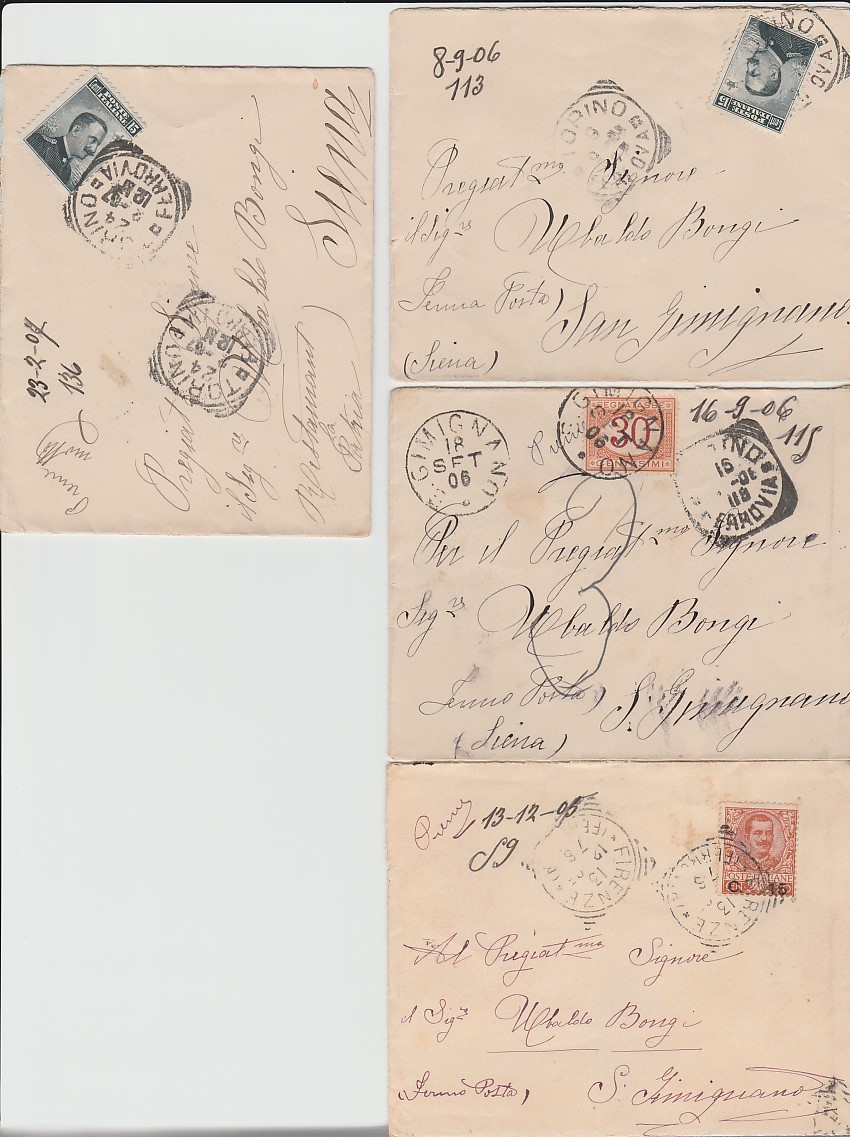 8-9-06
113
TORINO
Pregiat mo Signore
il Sig re Ubaldo Bongi
Fermo Posta)
San Gimignano
(Siena)
15
TORINO
FERROVIA
12 M
24
2
07
Siena
Pregiat
Signore
il Sig re Ubaldo Bongi
Patria
23-2-07
136
16-9-06
115
S. GIMIGNANO
18
SET
06
SEGNATASSE
30
CENTESIMI
S. GIMIGNANO
TORINO
FERROVIA
Per il Pregiat mo Signore
Sig re Ubaldo Bongi
Fermo Posta) S. Gimignano
(Siena)
3
13-12-05
59
FIRENZE
13
FIRENZE
13
POSTE ITALIANE
C. 15
Al Pregiat mo Signore
il Sig re Ubaldo Bongi
(Fermo Posta) S. Gimignano